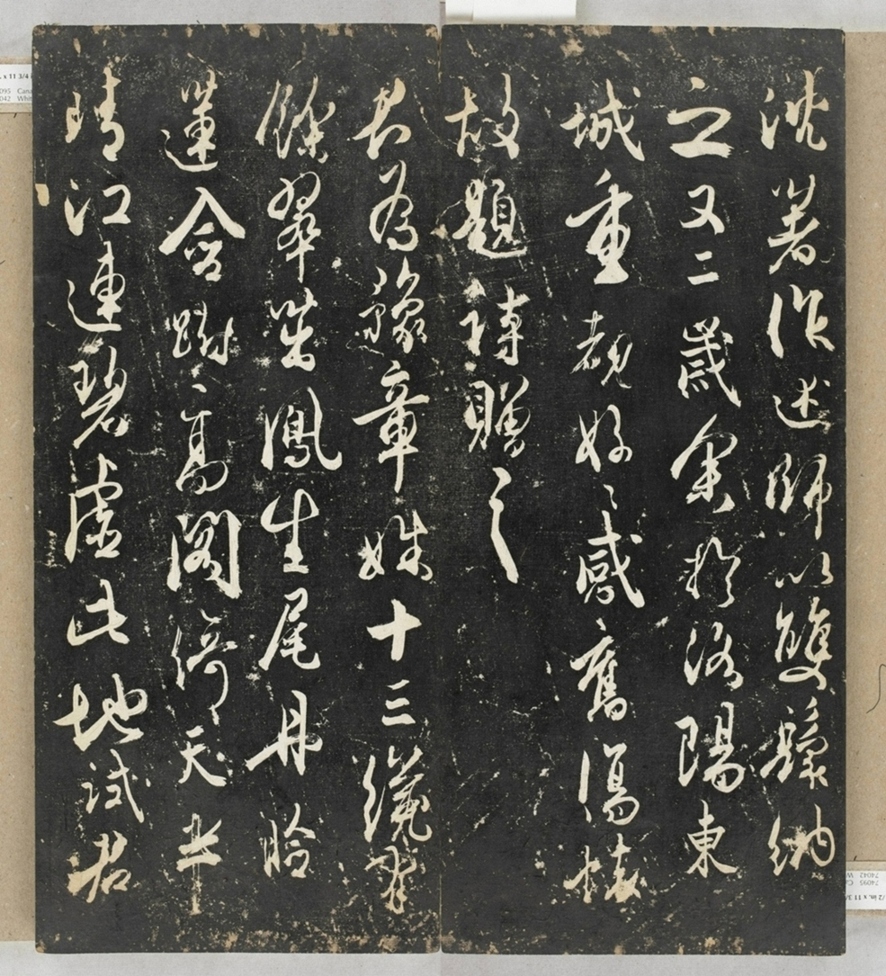 沈著作述師以雙鬟納
之又二歲余於洛陽東
城重覩好〻感舊傷懷
故題詩贈之
君為豫章姝十三纔有
餘翠茁鳳生尾丹臉
蓮含跗高閣倚天半
晴江連碧虛此地試君